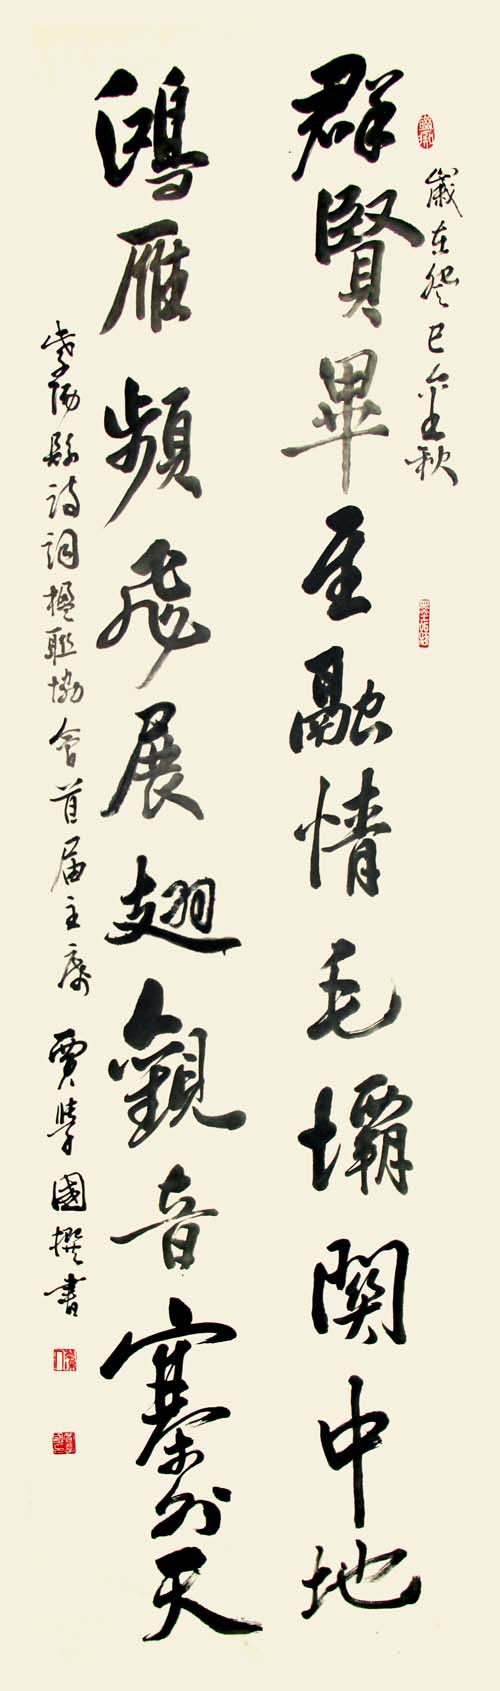 歲在癸巳金秋
群賢畢至融情毛壩關中地
鴻雁頻飛展翅觀音寨外天
紫陽縣詩詞楹聯協會首届主席 賈學國撰書